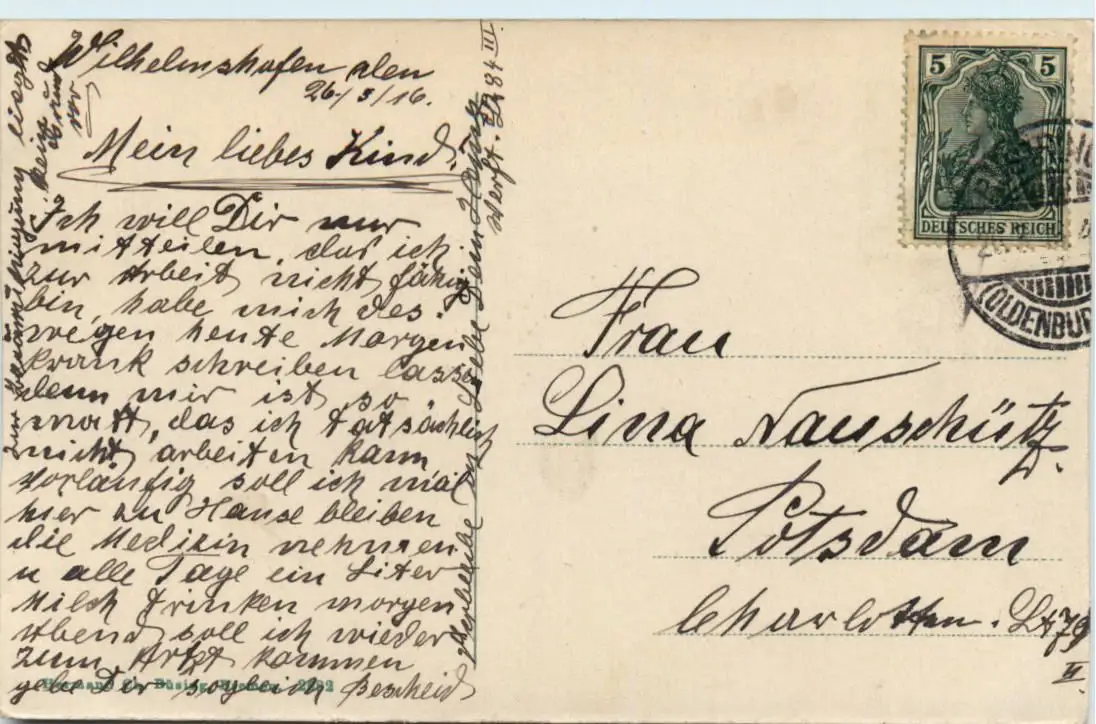 Wilhelmshafen den
26/5/16.
Mein liebes Kind.
Ich will Dir nur
mitteilen, das ich
zur Arbeit nicht fähig
bin, habe mich des-
wegen heute Morgen
krank schreiben lasse
denn mir ist so
matt, das ich tatsächlich
nicht arbeiten kann
vorläufig soll ich mal
hier zu Hause bleiben
die Medizin nehmen
u alle Tage ein Liter
Milch trinken morgen
Abend soll ich wieder
zum Artzt kommen
gebe Dir sogleich Bescheid
zur Beunruhigung liegt
kein Grund
vor
Verbleibe in Liebe Dein
Werft. Str 84 III
5 5
DEUTSCHES REICH
OLDENBUR
Frau
Lina Nauschütz
Potsdam
Charlotten. Str 79
II